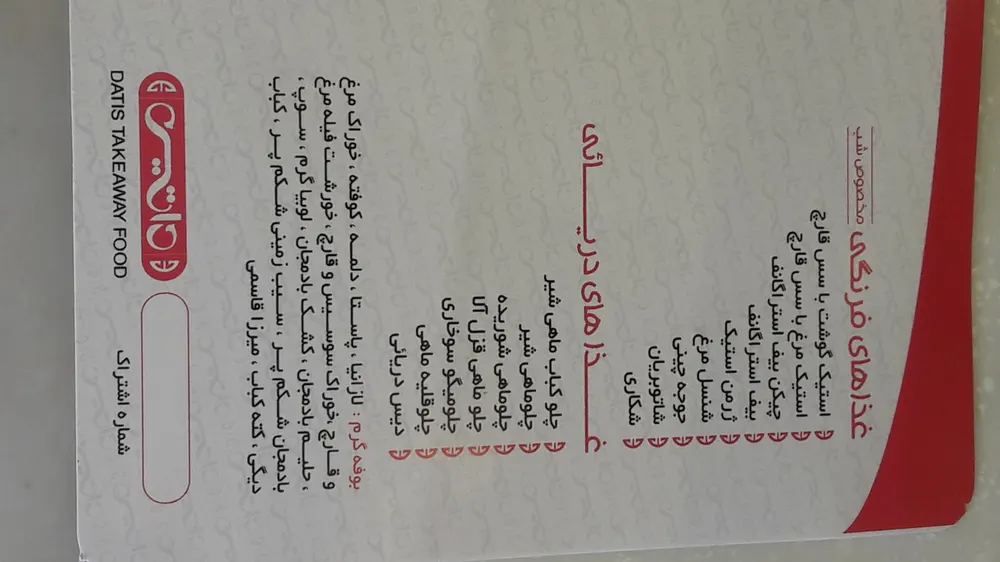 غذاهای فرنگی مخصوص شب
استیک گوشت با سس قارچ
استیک مرغ با سس قارچ
چیکن بیف استراگانف
بیف استراگانف
ژرمن استیک
شنسل مرغ
جوجه چینی
شاتوبریان
شکاری
غذاهای دریائی
چلو کباب ماهی شیر
چلوماهی شیر
چلوماهی شوریده
چلو ماهی قزل آلا
چلومیگو سوخاری
چلوقلیه ماهی
دیس دریائی
بوفه گرم : لازانیا ، پاستا ، دلمه ، کوفته ، خوراک مرغ
و قارچ ،خوراک سوسیس و قارچ ، خورشت فیله مرغ
، حلیم بادمجان ، کشک بادمجان ، لوبیا گرم ، سوپ ،
بادمجان شکم پر ، سیب زمینی شکم پر ، کباب
دیگی ، کته کباب ، میرزا قاسمی
داتیس
DATIS TAKEAWAY FOOD
شماره اشتراک